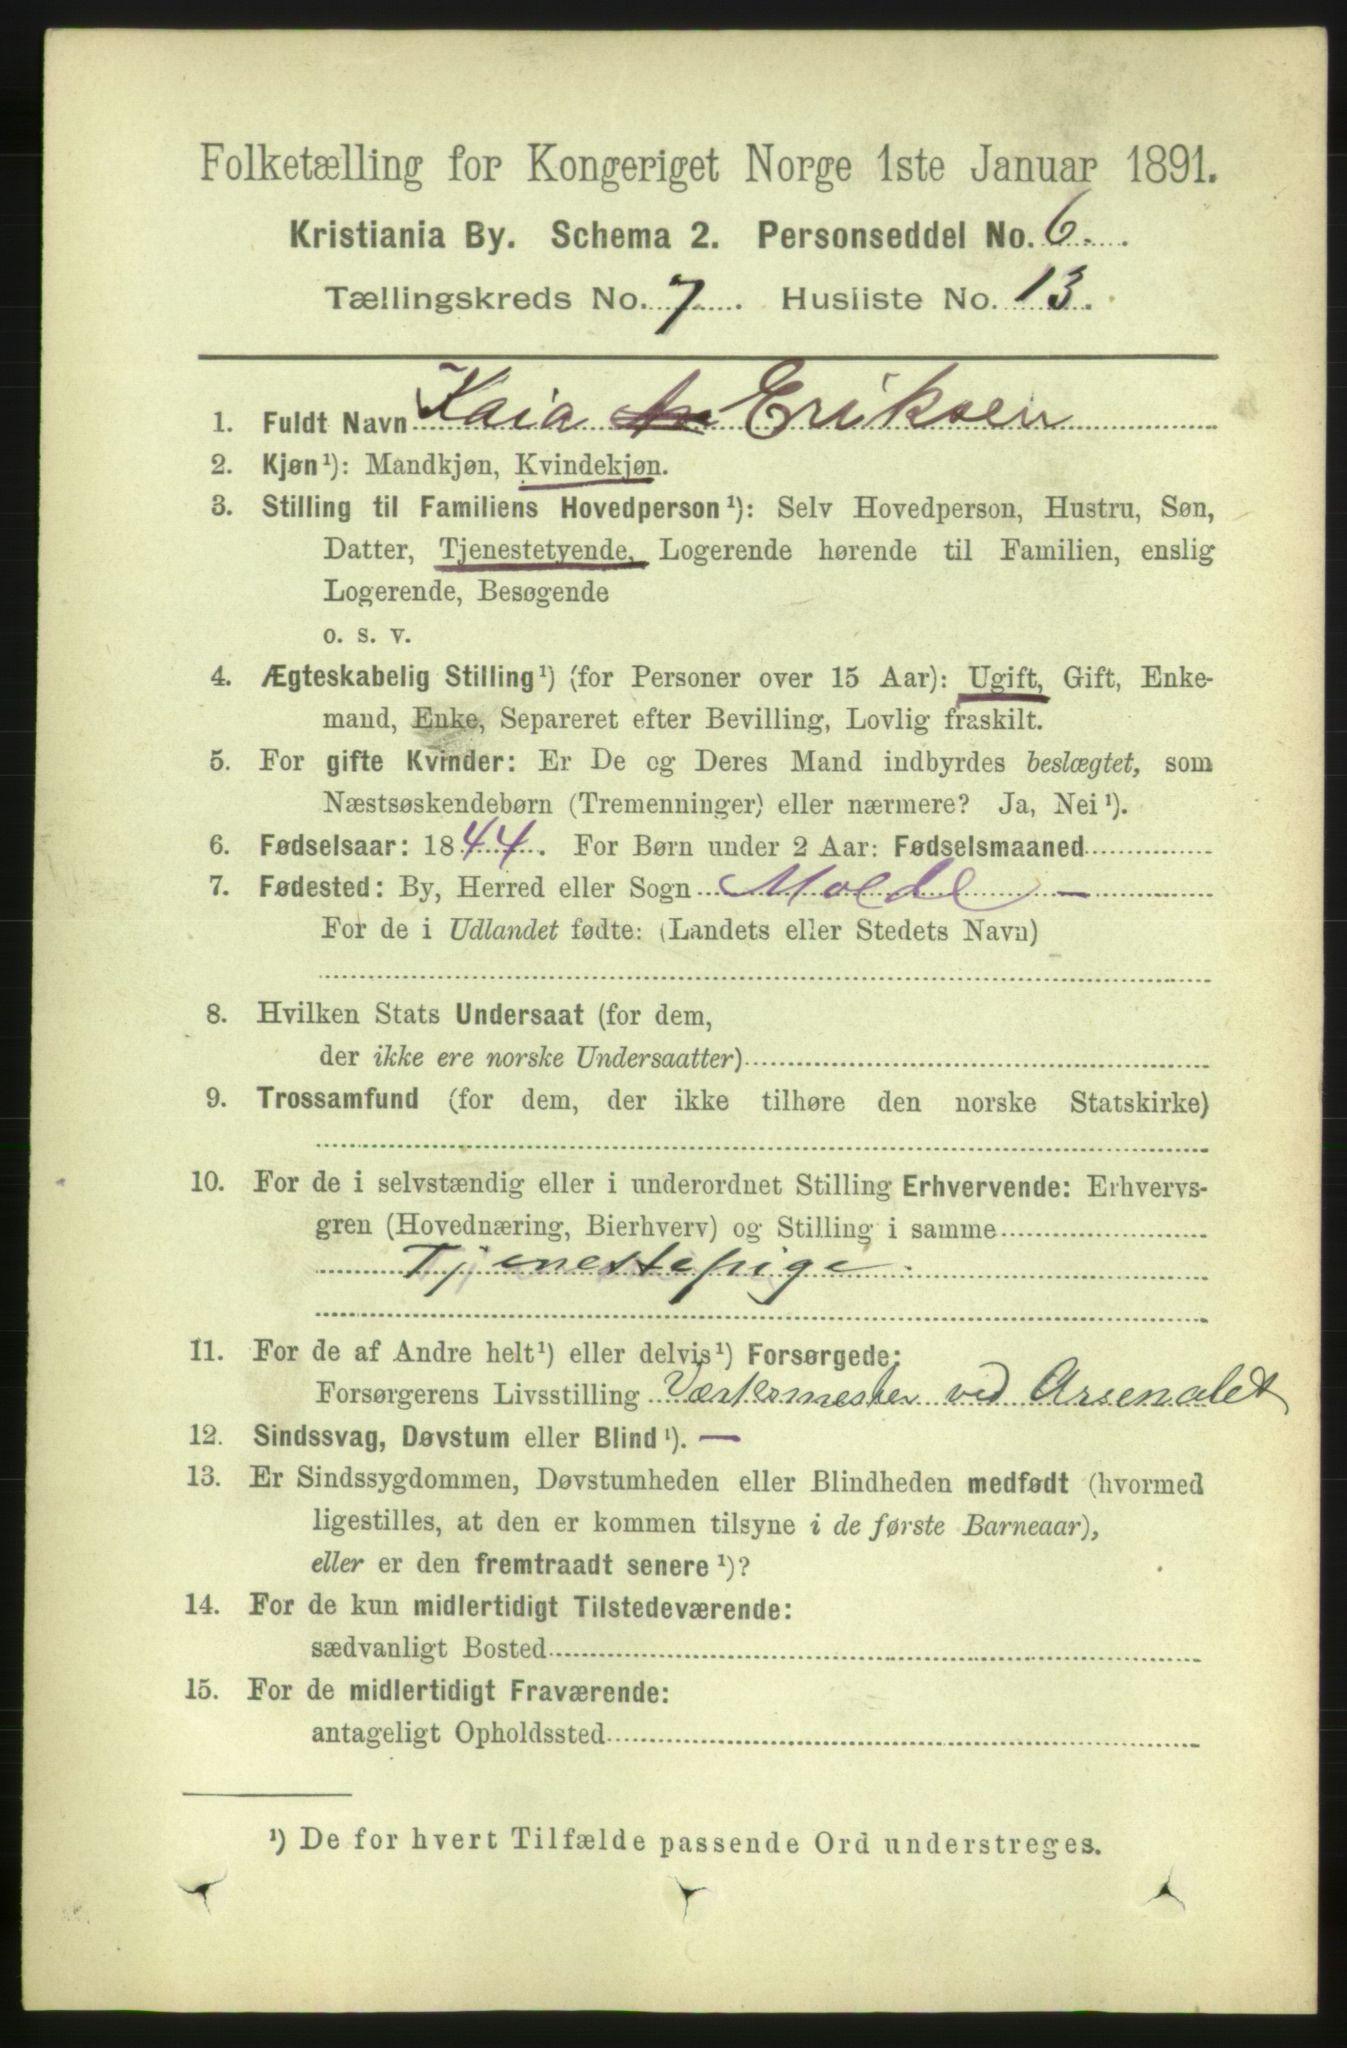 Folketælling for Kongeriget Norge 1ste Januar 1891.
Kristiania By. Schema 2. Personseddel No. 6.
Tællingskreds No. 7. Husliste No. 13.
1. Fuldt Navn Kaia Eriksen
2. Kjøn¹): Mandkjøn, Kvindekjøn.
3. Stilling til Familiens Hovedperson¹): Selv Hovedperson, Hustru, Søn,
Datter, Tjenestetyende, Logerende hørende til Familien, enslig
Logerende, Besøgende
o. s. v.
4. Ægteskabelig Stilling¹) (for Personer over 15 Aar): Ugift, Gift, Enke-
mand, Enke, Separeret efter Bevilling, Lovlig fraskilt.
5. For gifte Kvinder: Er De og Deres Mand indbyrdes beslægtet, som
Næstsøskendebørn (Tremenninger) eller nærmere? Ja, Nei¹).
6. Fødselsaar: 1844. For Børn under 2 Aar: Fødselsmaaned
7. Fødested: By, Herred eller Sogn Molde –
For de i Udlandet fødte: (Landets eller Stedets Navn)
8. Hvilken Stats Undersaat (for dem,
der ikke ere norske Undersaatter)
9. Trossamfund (for dem, der ikke tilhøre den norske Statskirke)
10. For de i selvstændig eller i underordnet Stilling Erhvervende: Erhvervs-
gren (Hovednæring, Bierhverv) og Stilling i samme
Tjenestepige.
11. For de af Andre helt¹) eller delvis¹) Forsørgede:
Forsørgerens Livsstilling Værkmester ved Arsenalet
12. Sindssvag, Døvstum eller Blind¹). –
13. Er Sindssygdommen, Døvstumheden eller Blindheden medfødt (hvormed
ligestilles, at den er kommen tilsyne i de første Barneaar),
eller er den fremtraadt senere¹)?
14. For de kun midlertidigt Tilstedeværende:
sædvanligt Bosted
15. For de midlertidigt Fraværende:
antageligt Opholdssted
¹) De for hvert Tilfælde passende Ord understreges.